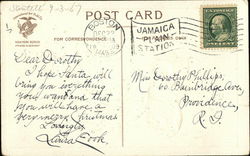 9-3-67
POST CARD
FOR CORRESPONDENCE
BOSTON
DEC 23
JAMAICA
PLAIN
STATION
Dear Dorothy
I hope Santa will
bring you everything
you want and that
you will have a
very merry Christmas
Lovingly
Cook.
Miss Dorothy Phillips,
60 Bainbridge Ave,
Providence,
R.I.